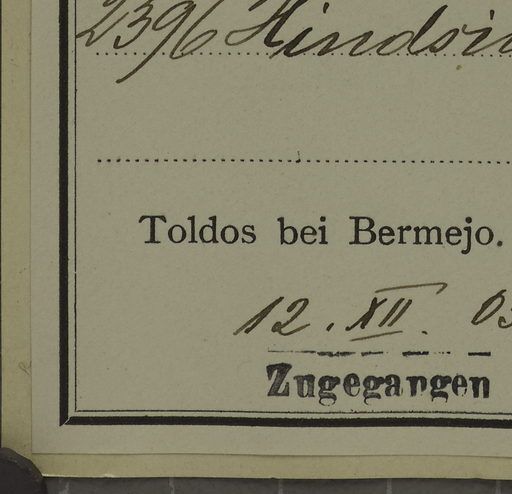 2396 Hindsi
Toldos bei Bermejo.
12. XII. 03
Zugegangen